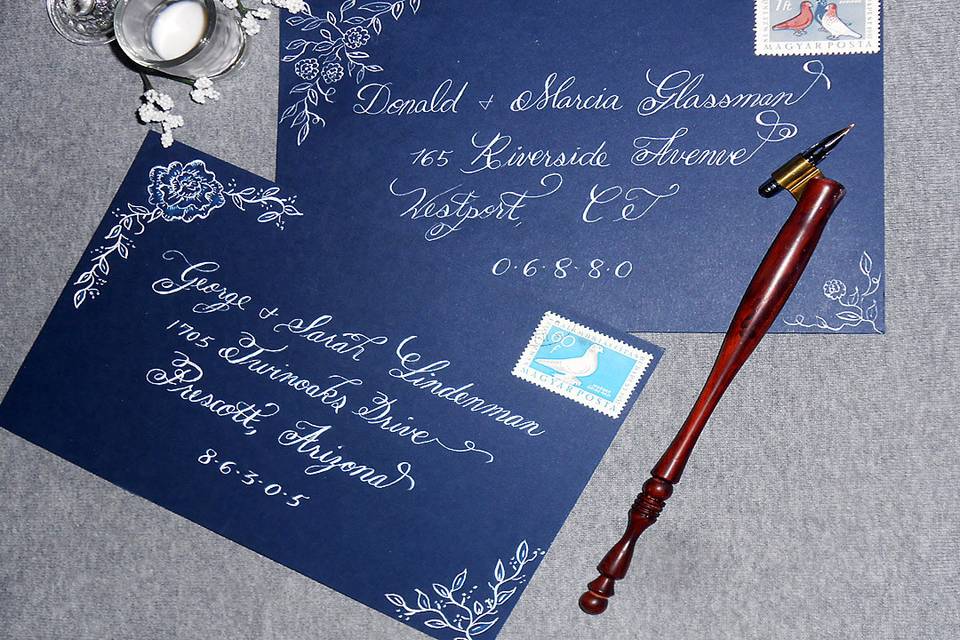 1Ft
MAGYAR POSTA
Donald + Marcia Glassman
165 Riverside Avenue
Westport, CT
0·6·8·8·0
George + Sarah Lindenman
1705 Twinoaks Drive
Prescott, Arizona
8·6·3·0·5
60
f
MAGYAR POSTA